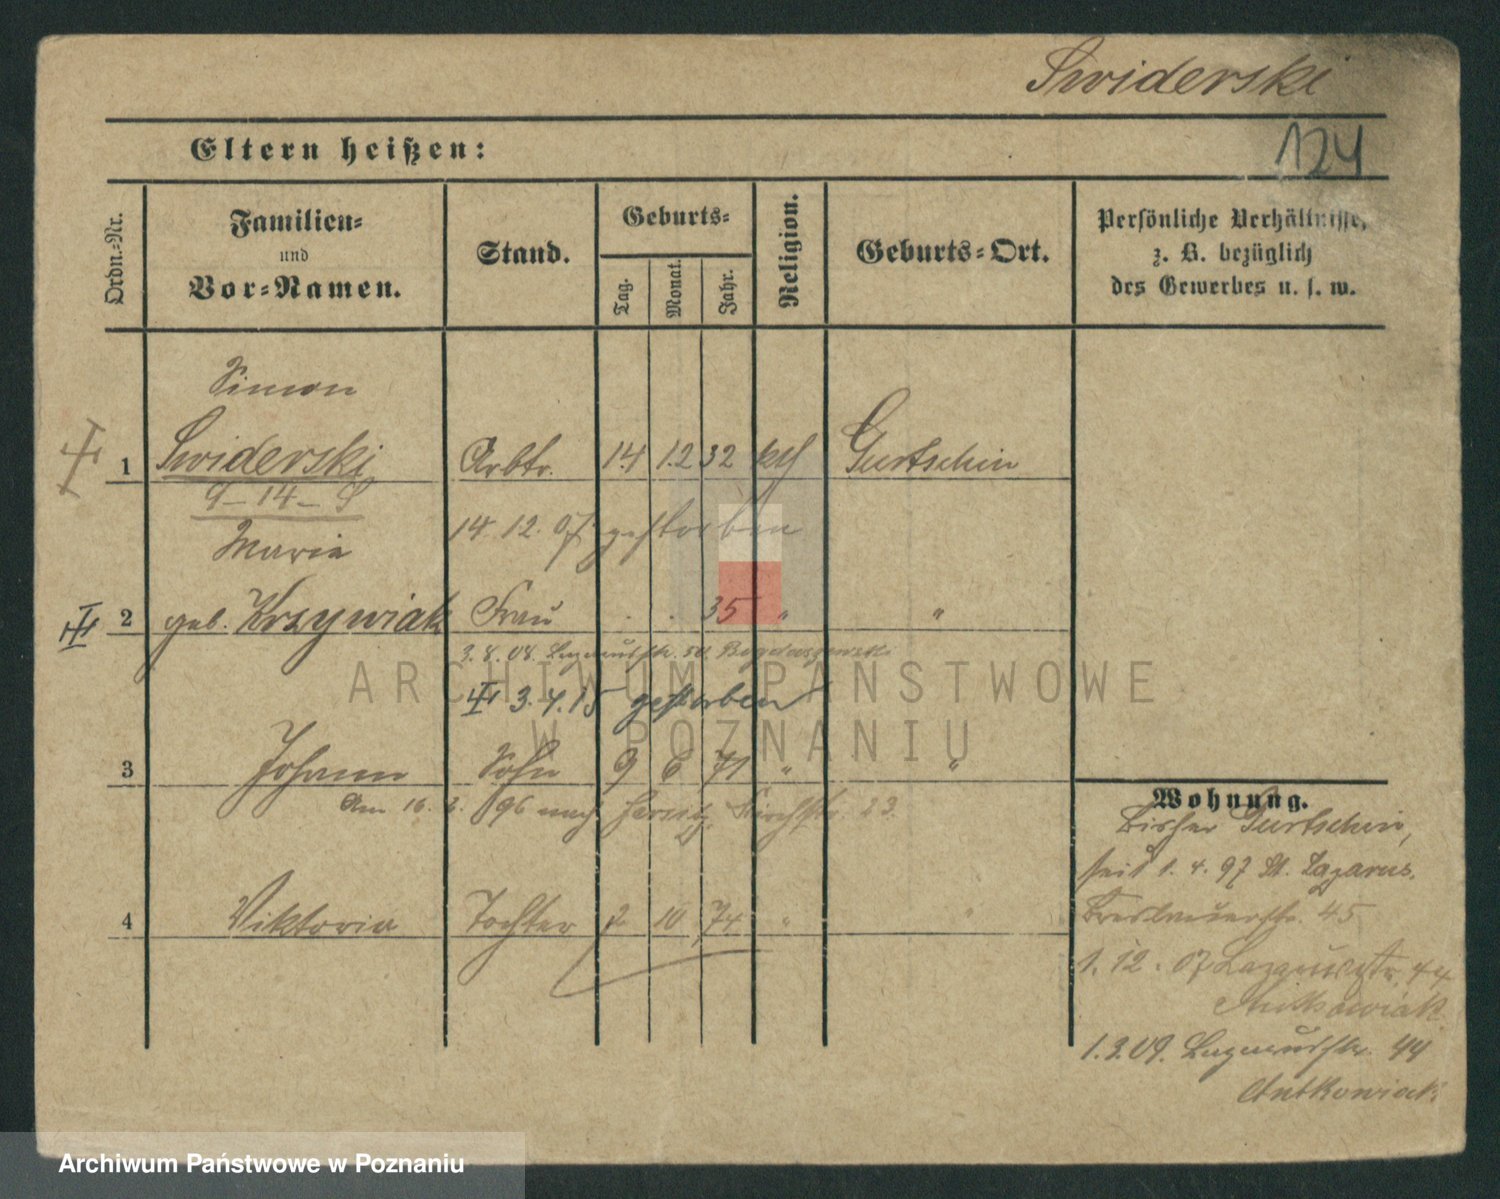 Swiderski
124
Eltern heißen:
Ordn.-Nr.
Familien-
und
Vor-Namen.
Stand.
Geburts-
Tag.
Monat.
Jahr.
Religion.
Geburts-Ort.
Persönliche Verhältnisse,
z. B. bezüglich
des Gewerbes u. s. w.
Simon
1 Swiderski Arbtr. 14 12 32 kth Gurtschin
9-14-
14 12. 07 gestorben
Maria
2 geb. Krzywiak Frau . . 35 " "
3.8.08. Lazarusstr. 50
3.4.15 gestorben
3 Johann Sohn 9 6 71 " "
Am 16. 96 nach Jersitz, Kirchstr. 23.
4 Viktoria Tochter 2 10 74 " "
Wohnung.
Bisher Gurtschin,
seit 1. 4. 97 St. Lazarus,
Breslauerstr. 45
1. 12. 07 Lazarusstr. 44
Antkowiak
1.3.09. Lazarusstr. 44
Antkowiak
ARCHIWUM PAŃSTWOWE
W POZNANIU
Archiwum Państwowe w Poznaniu